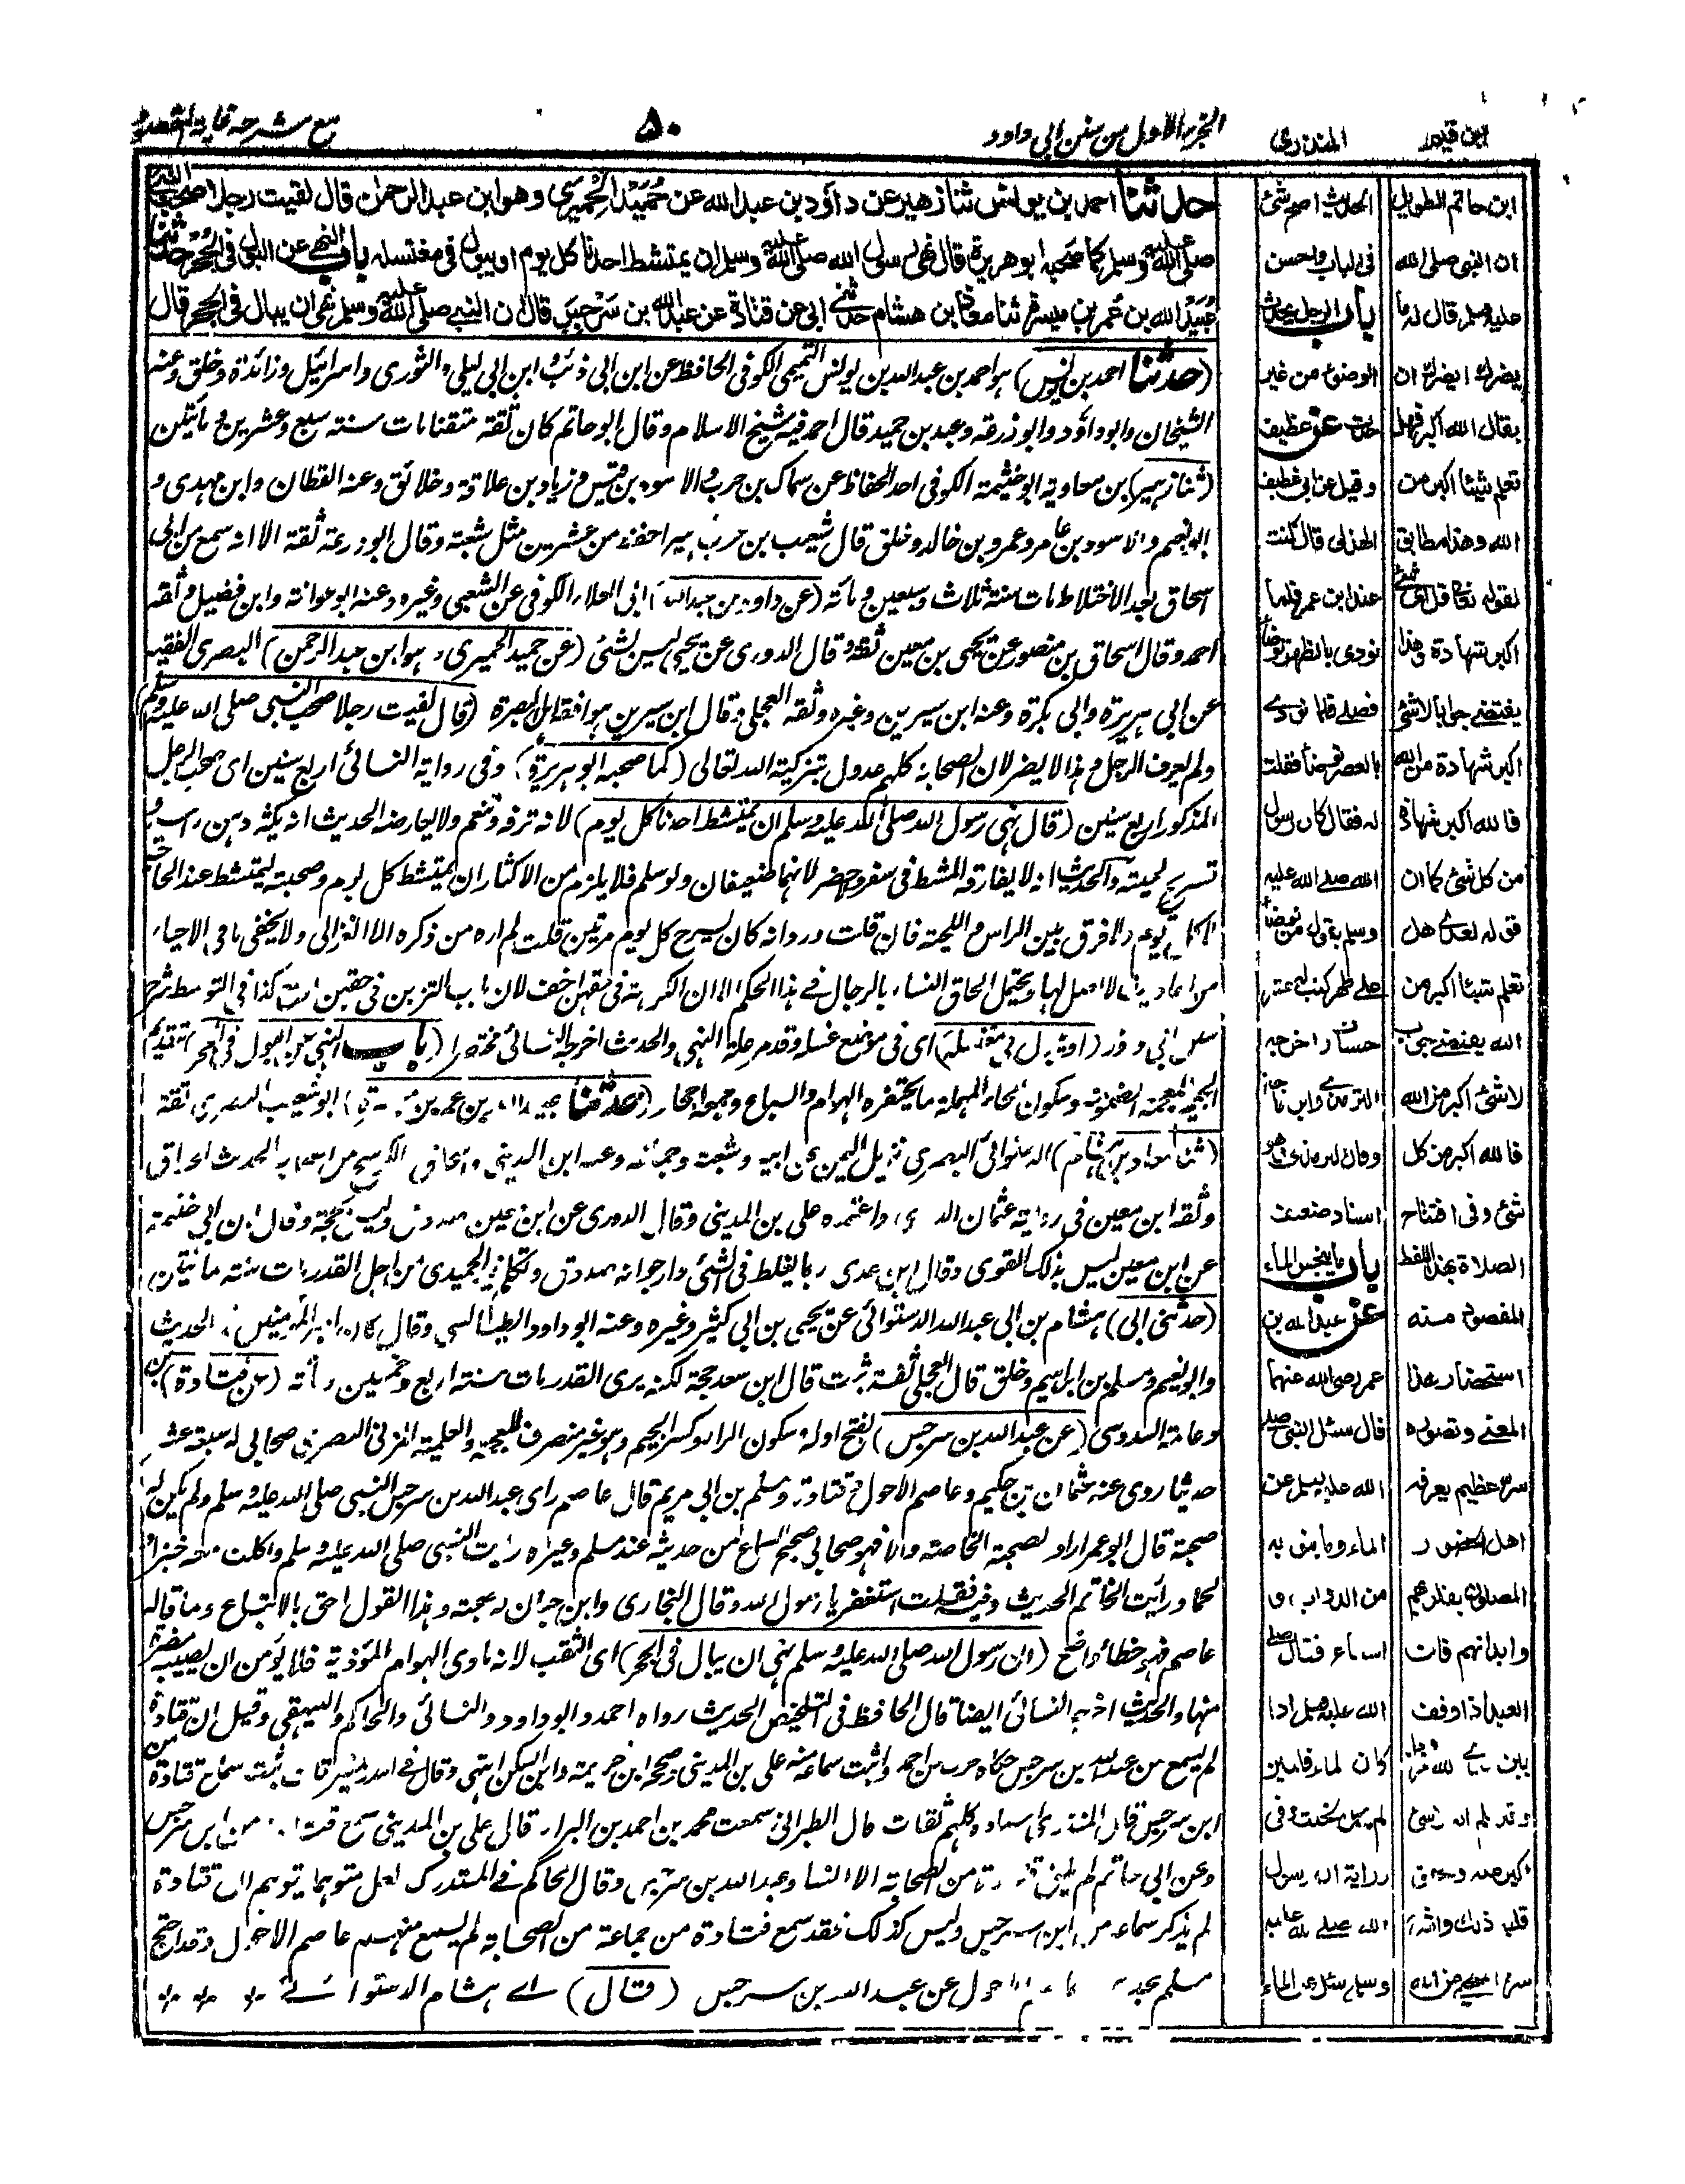 ابن قيم
المنذري
الجزء الاول من سنن ابي داود
٥٠
مع شرحه غاية المقصود
حدثنا احمد بن يونس ثنا زهير عن داود بن عبد الله عن حُمَيْد الحِمْيَري وهو ابن عبد الرحمن قال لقيت رجلا صحب النبي
صلى الله عليه وسلم كما صحبه ابو هريرة قال نهى رسول الله صلى الله عليه وسلم ان يمتشط احدنا كل يوم او يبول في مغتسله باب النهي عن البول في الجُحْر حدثنا
عُبَيْد الله بن عمر بن ميسرة ثنا معاذ بن هشام حدثني ابي عن قتادة عن عبد الله بن سَرْجِسَ قال ان النبي صلى الله عليه وسلم نهى ان يبال في الجحر قال
(حدثنا احمد بن يونس) هو احمد بن عبد الله بن يونس التميمي الكوفي الحافظ عن ابن ابي ذئب وابن ابي ليلى والثوري واسرائيل وزائدة وخلق وعنه
الشيخان وابو داود وابو زرعة وعبد بن حميد قال احمد فيه شيخ الاسلام وقال ابو حاتم كان ثقة متقنا مات سنة سبع وعشرين ومأتين
(ثنا زهير) بن معاوية ابو خيثمة الكوفي احد الحفاظ عن سماك بن حرب والاسود بن قيس وزياد بن علاقة وخلائق وعنه القطان وابن مهدي و
ابو نعيم والاسود بن عامر وعمرو بن خالد وخلق قال شعيب بن حرب زهير احفظ من عشرين مثل شعبة وقال ابو زرعة ثقة الا انه سمع من ابي
اسحاق بعد الاختلاط مات سنة ثلاث وسبعين ومأته (عن داود بن عبد الله) ابي العلاء الكوفي عن الشعبي وغيره وعنه ابو عوانة وابن فضيل وثقه
احمد وقال اسحاق بن منصور عن يحيى بن معين ثقة وقال الدوري عن يحيى ليس بشئ (عن حميد الحميري وهو ابن عبد الرحمن) البصري الفقيه
عن ابي هريرة وابي بكرة وعنه ابن سيرين وغيره وثقه العجلي وقال ابن سيرين هو افقه اهل البصرة (قال لقيت رجلا صحب النبي صلى الله عليه وسلم)
ولم يعرف الرجل وهذا لا يضر لان الصحابة كلهم عدول بتزكية الله تعالى (كما صحبه ابو هريرة) وفي رواية النسائي اربع سنين اي صحب الرجل
المذكور اربع سنين (قال نهى رسول الله صلى الله عليه وسلم ان يمتشط احدنا كل يوم) لانه ترفه وتنعم ولا يعارضه الحديث انه يكثر دهن راسه و
تسريح لحيته والحديث انه لا يفارقه المشط في سفر وحضر لانهما ضعيفان ولو سلم فلا يلزم من الاكثار ان يمتشط كل يوم وصحبته ليمتشط عند الحاجة
لا كل يوم ولا فرق بين الراس واللحية فان قلت ورد انه كان يسرح كل يوم مرتين قلت لم اره من ذكره الا الغزالي ولا يخفى ما في الاحياء
من احاديث لا اصل لها ويحتمل الحاق النساء بالرجال في هذا الحكم الا ان الكراهة في حقهن اخف لان باب التزين في حقهن اوسع كذا في التوسط شرح
سنن ابي داود (او يبول في مغتسله) اي في موضع غسله وقدم علة النهي والحديث اخرجه النسائي مختصرا (باب النهي عن البول في الجحر) بتقديم
الجيم المعجمة المضمومة وسكون الحاء المهملة ما يحتفره الهوام والسباع وجمعه اجحار (حدثنا عبيد الله بن عمر بن ميسرة) ابو شعيب البصري ثقة
(ثنا معاذ بن هشام) الدستوائي البصري نزيل اليمن عن ابيه وشعبة وجماعة وعنه ابن المديني واسحاق الكوسج من اصحاب الحديث الحذاق
وثقه ابن معين في رواية عثمان الدارمي واعتمده علي بن المديني وقال الدوري عن ابن معين صدوق وليس بحجة وقال ابن ابي خيثمة
عن ابن معين ليس بذلك القوي وقال ابن عدي ربما يغلط في الشئ وارجو انه صدوق وتكلم فيه الحميدي من اجل القدر مات سنة مائتين
(حدثني ابي) هشام بن ابي عبد الله الدستوائي عن يحيى بن ابي كثير وغيره وعنه ابو داود الطيالسي وقال كان امير المؤمنين في الحديث
وابو نعيم ومسلم بن ابراهيم وخلق قال العجلي ثقة ثبت قال ابن سعد حجة لكنه يرى القدر مات سنة اربع وخمسين ومأته (عن قتادة) بن
دعامة السدوسي (عن عبد الله بن سرجس) بفتح اوله وسكون الراء وكسر الجيم وهو غير منصرف للعجمة والعلمية المزني البصري صحابي له سبعة عشر
حديثا روى عنه عثمان بن حكيم وعاصم الاحول وقتادة ومسلم بن ابي مريم قال عاصم راى عبد الله بن سرجس النبي صلى الله عليه وسلم ولم يكن له
صحبة قال ابو عمر اراد الصحبة الخاصة والا فهو صحابي صحيح السماع من حديثه عند مسلم وغيره رايت النبي صلى الله عليه وسلم واكلت معه خبزا و
لحما ورأيت الخاتم الحديث وفيه فقلت استغفر لي يا رسول الله وقال البخاري وابن حبان له صحبة وهذا القول احق بالاتباع وما قاله
عاصم فهو خطأ واضح (ان رسول الله صلى الله عليه وسلم نهى ان يبال في الجحر) اي الثقب لانه ماوى الهوام المؤذية فلا يؤمن ان يصيبه مضرة
منها والحديث اخرجه النسائي ايضا قال الحافظ في التلخيص الحديث رواه احمد وابو داود والنسائي والحاكم والبيهقي وقيل ان قتادة
لم يسمع من عبد الله بن سرجس حكاه حرب عن احمد واثبت سماعه منه علي بن المديني وصححه ابن خزيمة وابن السكن انتهى وقال في اسد ثبت سماع قتادة من
ابن سرجس قال المنذري واسناده كلهم ثقات قال الطبراني سمعت محمد بن احمد بن البراء قال علي بن المديني سمع قتادة من ابن سرجس
وعن ابي حاتم لم يلق قتادة من الصحابة الا انسا وعبد الله بن سرجس وقال الحاكم في المستدرك لعل متوهما يتوهم ان قتادة
لم يذكر سماعه من ابن سرجس وليس كذلك فقد سمع قتادة من جماعة من الصحابة لم يسمع منهم عاصم الاحول وقد احتج
مسلم بحديث عاصم الاحول عن عبد الله بن سرجس (قال) اي هشام الدستوائي
الحديث اصح شئ
في الباب واحسن
باب الرجل يحدث
الوضوء من غير
حدث عن غطيف
وقيل عن ابي غطيف
الهذلي قال كنت
عند ابن عمر فلما
نودي بالظهر توضأ
فصلى فلما نودي
بالعصر توضأ فقلت
له فقال كان رسول
الله صلى الله عليه
وسلم يقول من توضأ
على طهر كتب له عشر
حسنات اخرجه
الترمذي وابن ماجة
وقال الترمذي هو
اسناد ضعيف
باب ما ينجس الماء
عن عبد الله بن
عمر رضي الله عنهما
قال سئل النبي صلى
الله عليه وسلم عن
الماء وما ينوبه
من الدواب و
السباع فقال صلى
الله عليه وسلم اذا
كان الماء قلتين
لم يحمل الخبث وفي
رواية ان رسول
الله صلى الله عليه
وسلم سئل عن الماء
ابن حاتم الطويل
ان النبي صلى الله
عليه وسلم قال له ما
يضرك ايضرك ان
يقال الله اكبر فهل
تعلم شيئا اكبر من
الله وهذا مطابق
لقوله تعالى قل اي شئ
اكبر شهادة وهذا
يقتضي جوابا لا شئ
اكبر شهادة من الله
فالله اكبر شهادة
من كل شئ كما ان
قوله لعدي هل
تعلم شيئا اكبر من
الله يقتضي جواب
لا شئ اكبر من الله
فالله اكبر من كل
شئ وفي افتتاح
الصلاة بهذا اللفظ
المقصود منه
استحضار هذا
المعنى وتصوره
سر عظيم يعرفه
اهل الحضور
المصلون بقلوبهم
وابدانهم فان
العبد اذا وقف
بين يدي الله عز وجل
وقد علم ان لا شئ
اكبر منه وتحقق
قلبه ذلك واشربه
سره استحيى من الله